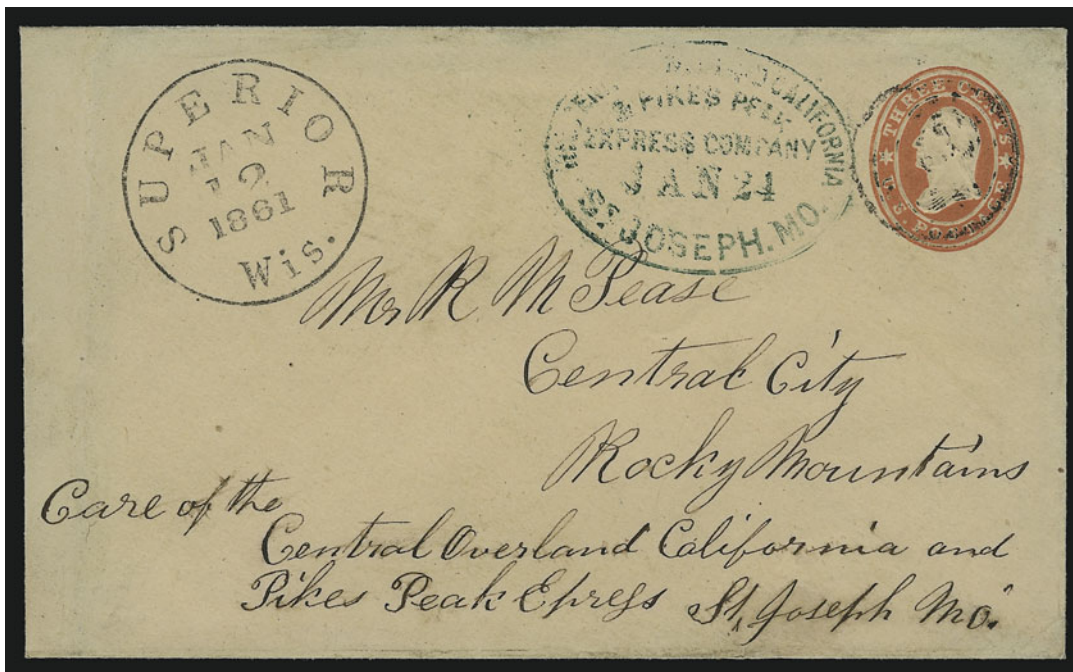 SUPERIOR
JAN
12
1861
Wis.
CALIFORNIA
& PIKES PEAK
EXPRESS COMPANY
JAN 24
ST JOSEPH. MO.
THREE CENTS
U.S.
Mr R M Pease
Central City
Rocky Mountains
Care of the
Central Overland California and
Pikes Peak Epress St, Joseph Mo.